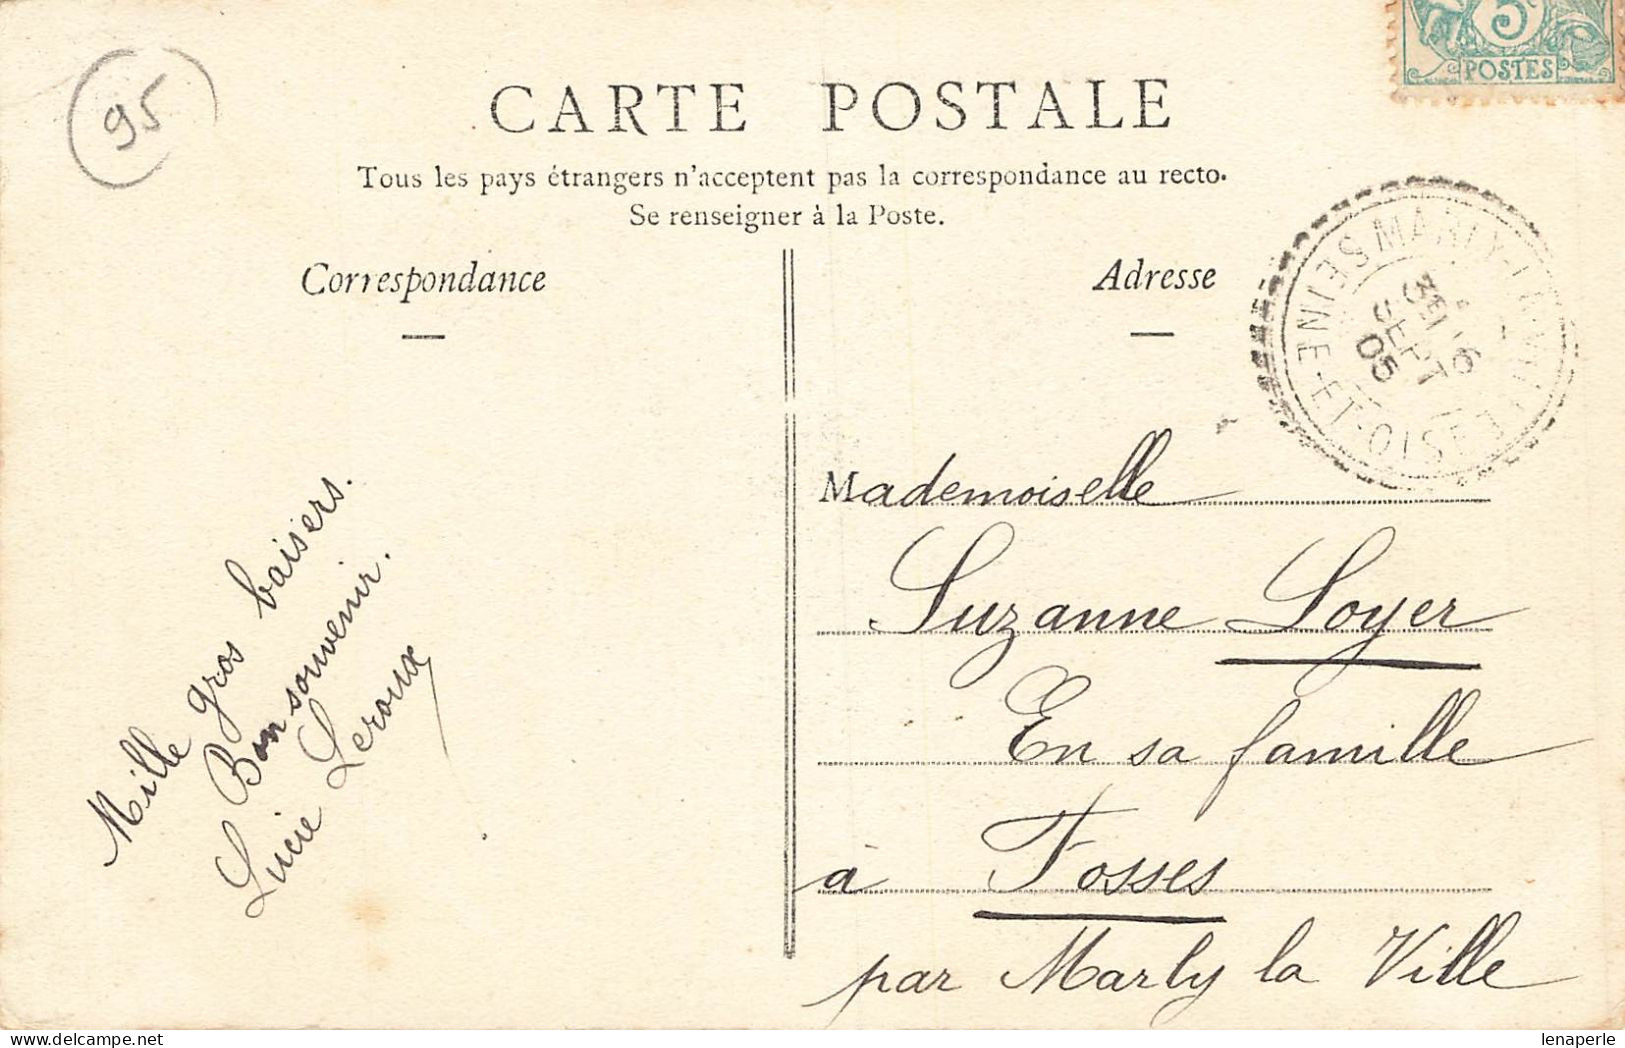 95
5
POSTES
CARTE POSTALE
Tous les pays étrangers n'acceptent pas la correspondance au recto.
Se renseigner à la Poste.
Correspondance
Adresse
MARLY-LA-VILLE
SEINE-ET-OISE
SEPT
05
Mille gros baisers.
Bon souvenir.
Lucie Leroux
Mademoiselle
Suzanne Loyer
En sa famille
à Fosses
par Marly la Ville
lenaperle